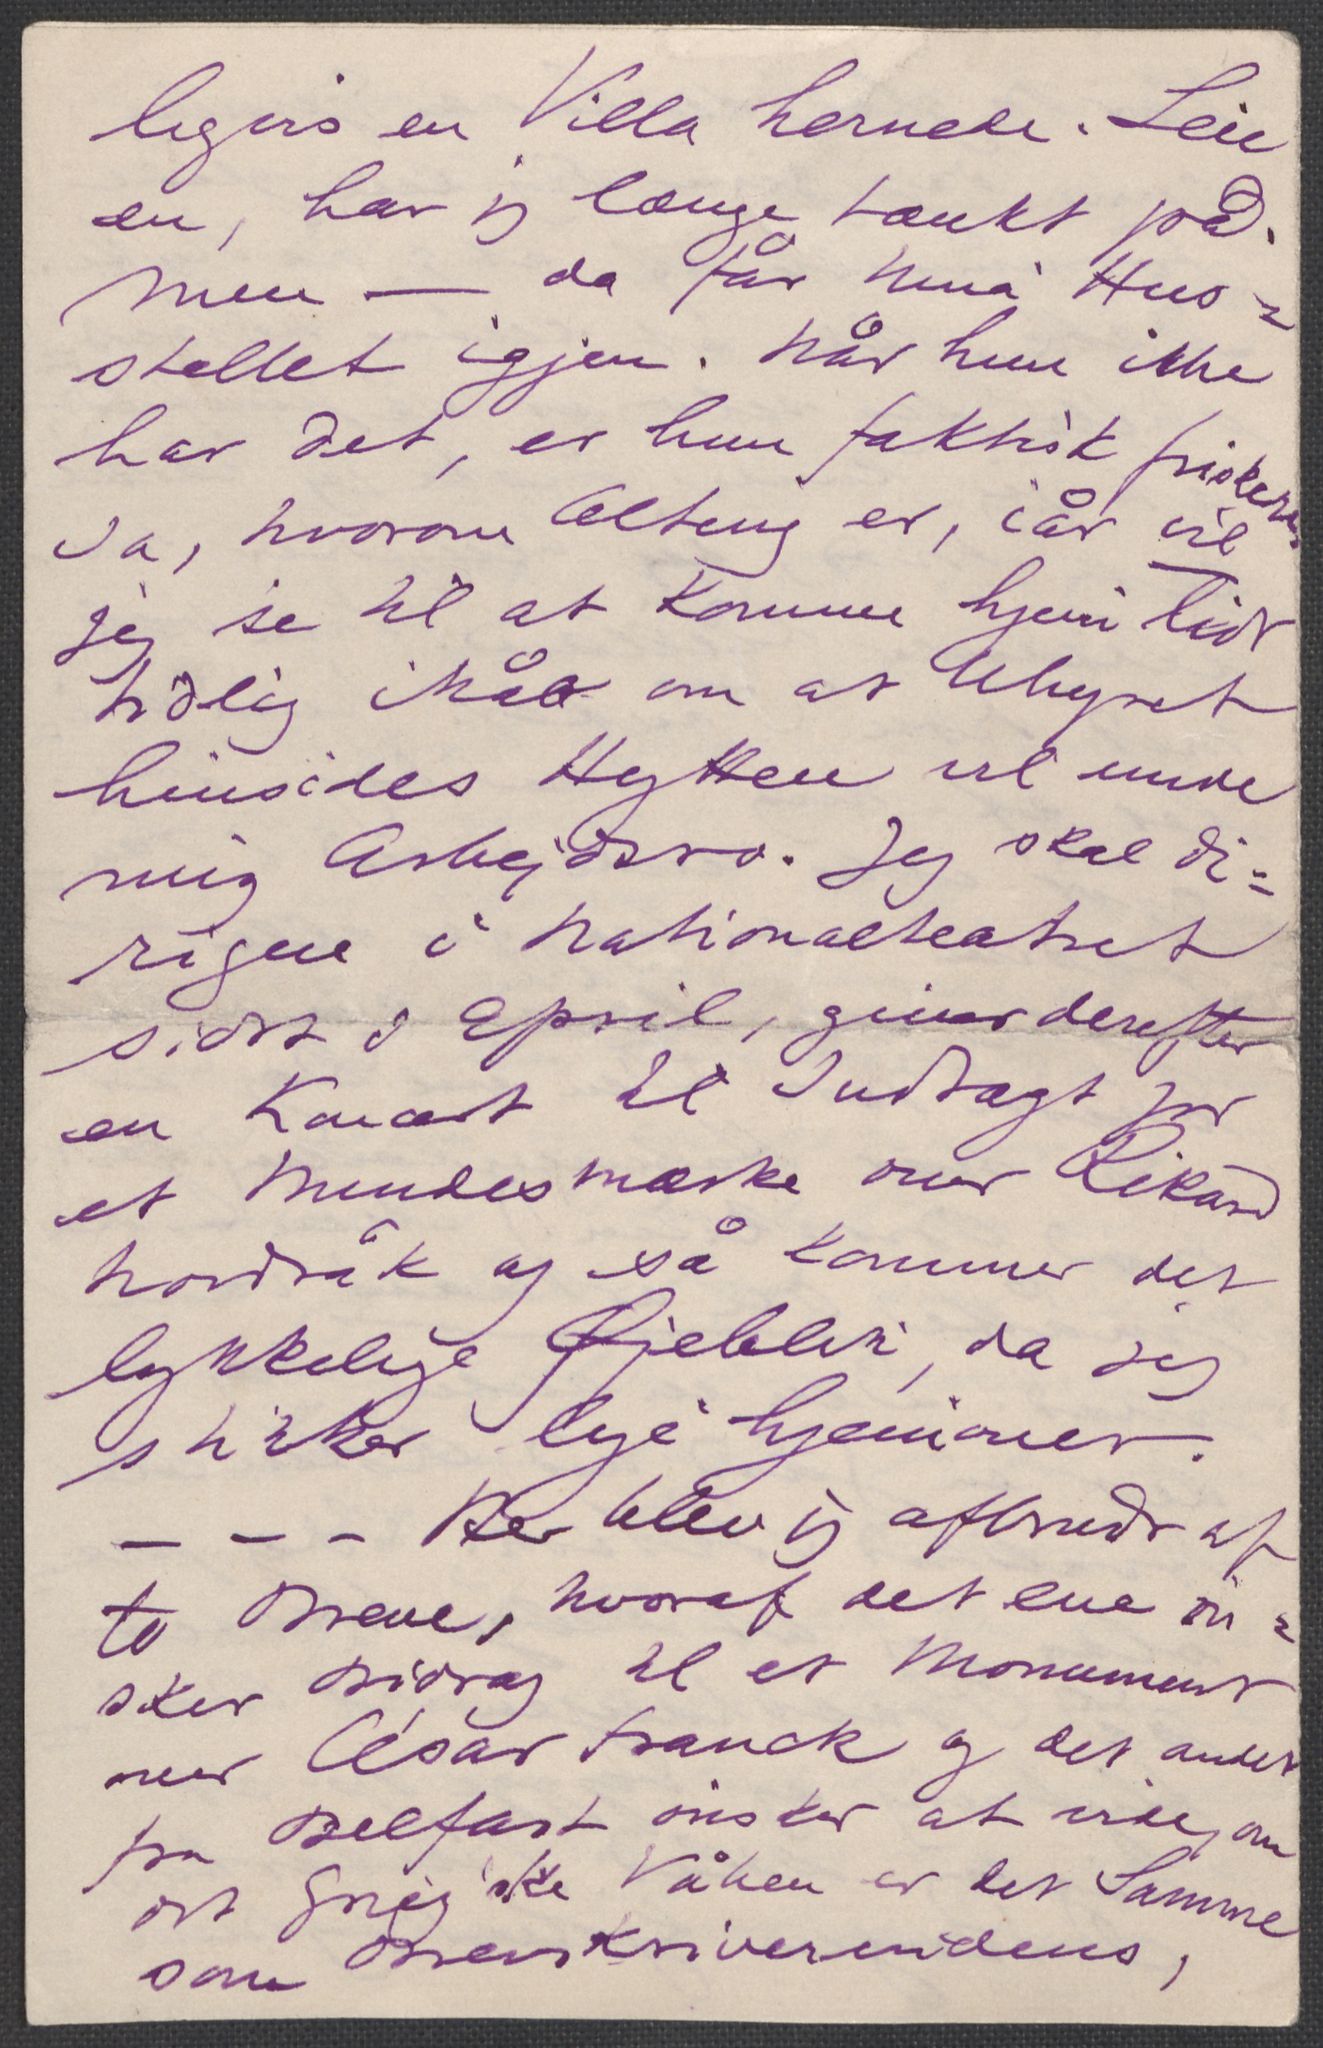 ligvis en Villa hernede. Leie
en, har jeg længe tænkt på.
Men — da får Nina Hus=
stellet igjen. Når hun ikke
har det, er hun faktisk friskere.
Ja, hvorom Alting er, iår vil
jeg se til at komme hjem lidt
tidlig i Håb om at Uhyret
hinsides Hytten vil unde
mig Arbejdsro. Jeg skal di=
rigere i Nationalteatret
sidst i April, giver derefter
en Koncert til Indtægt for
et Mindesmærke over Rikard
Nordråk og så kommer det
lykkelige Øjeblik, da jeg
stikker lige hjemover.
— — — Her blev jeg afbrudt af
to Breve, hvoraf det ene ön=
sker Bidrag til et Monument
over César Franck og det andet
fra Belfast önsker at vide, om
det Grieg'ske Våben er det Samme
som Brevskriverindens,